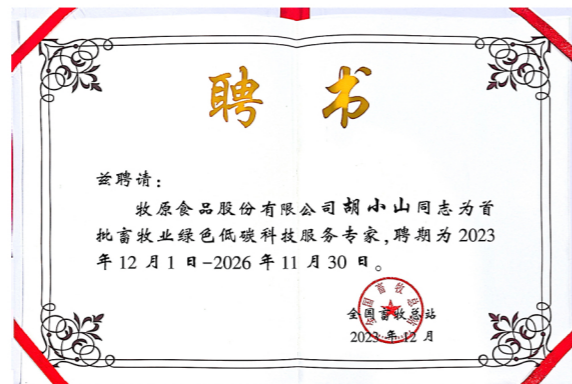 聘 书
兹聘请：
牧原食品股份有限公司胡小山同志为首
批畜牧业绿色低碳科技服务专家，聘期为2023
年12月1日-2026年11月30日。
全国畜牧总站
2023年12月